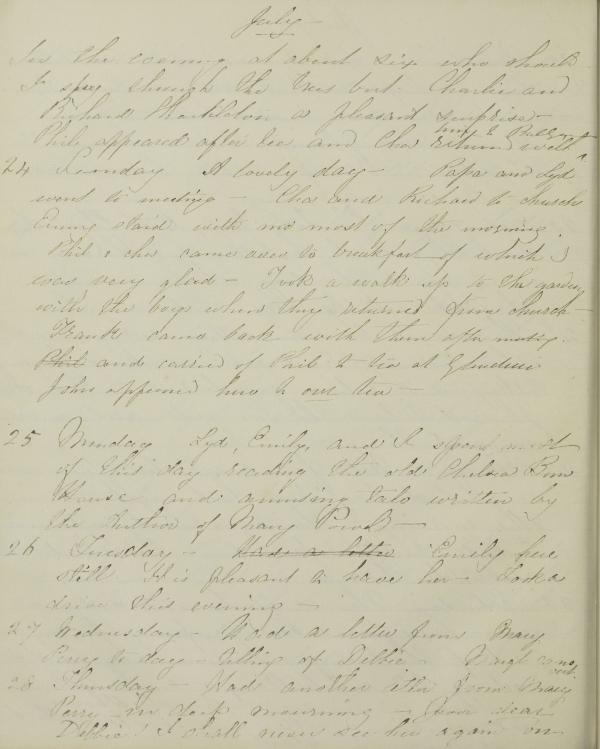 July
In the evening at about six who should
I spy through the trees but Charlie and
Richard a pleasant surprise
Phil appeared after tea and Cha returned with
24 Sunday A lovely day Papa and Lyd
went to meeting - Cha and Richard to church
Emmy staid with me most of the morning.
Phil & cha came over to breakfast of which I
was very glad - Took a walk up to the garden
with the boys when they returned from church -
Frank came back with them after meeting.
Phil and carried of Phil to tea at
John appeared here to our tea -
25 Monday Lyd, Emily, and I spent most
of this day reading the old Chelsea Bun
House and amusing tale written by
the Author of Mary Powell -
26 Tuesday - Had a letter Emily here
still. It is pleasant to have her - Took a
drive this evening -
27 Wednesday - Had a letter from Mary
Perry to day - telling of Debbie
28 Thursday - Had another from Mary
Perry - in deep mourning - poor dear
Debbie! I shall never see her again on